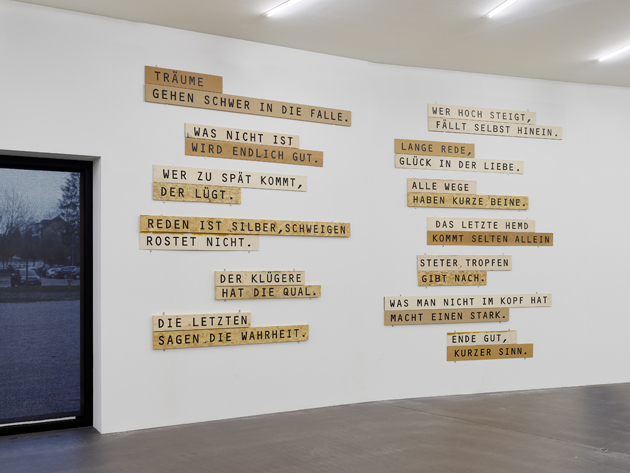 TRÄUME
GEHEN SCHWER IN DIE FALLE.
WAS NICHT IST
WIRD ENDLICH GUT.
WER ZU SPÄT KOMMT,
DER LÜGT.
REDEN IST SILBER,SCHWEIGEN
ROSTET NICHT.
DER KLÜGERE
HAT DIE QUAL.
DIE LETZTEN
SAGEN DIE WAHRHEIT.
WER HOCH STEIGT,
FÄLLT SELBST HINEIN.
LANGE REDE,
GLÜCK IN DER LIEBE.
ALLE WEGE
HABEN KURZE BEINE.
DAS LETZTE HEMD
KOMMT SELTEN ALLEIN
STETER TROPFEN
GIBT NACH.
WAS MAN NICHT IM KOPF HAT
MACHT EINEN STARK.
ENDE GUT,
KURZER SINN.